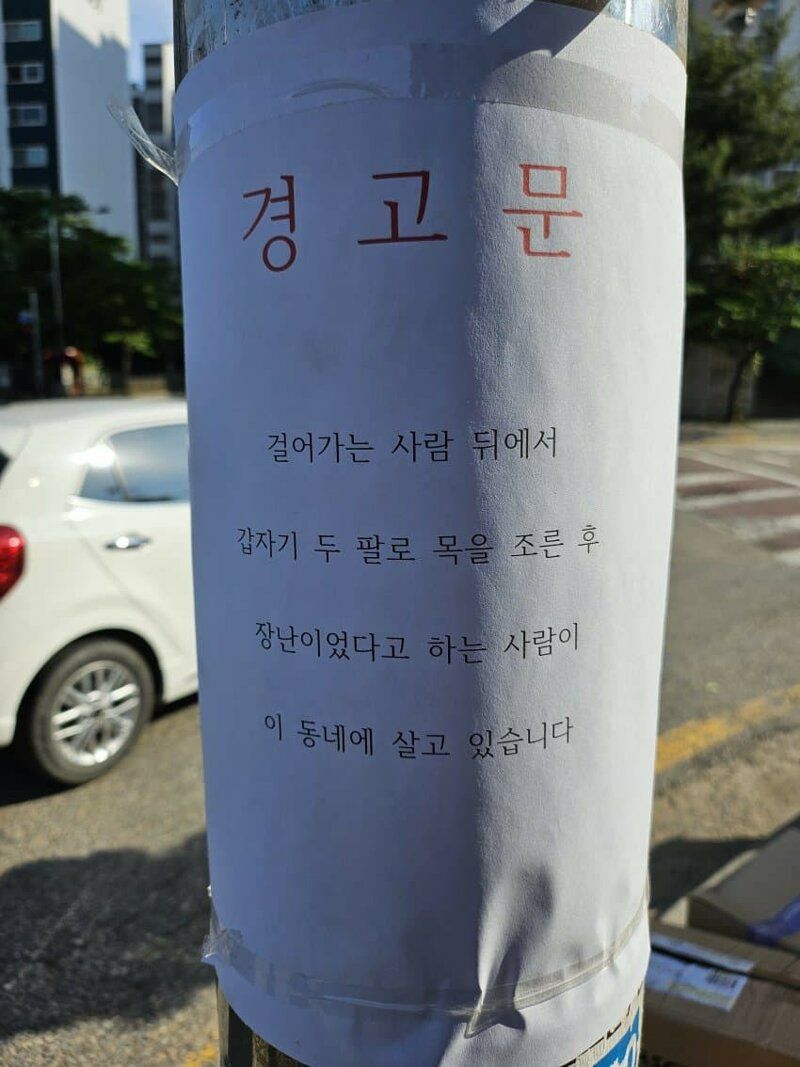 경 고 문
걸어가는 사람 뒤에서
갑자기 두 팔로 목을 조른 후
장난이었다고 하는 사람이
이 동네에 살고 있습니다